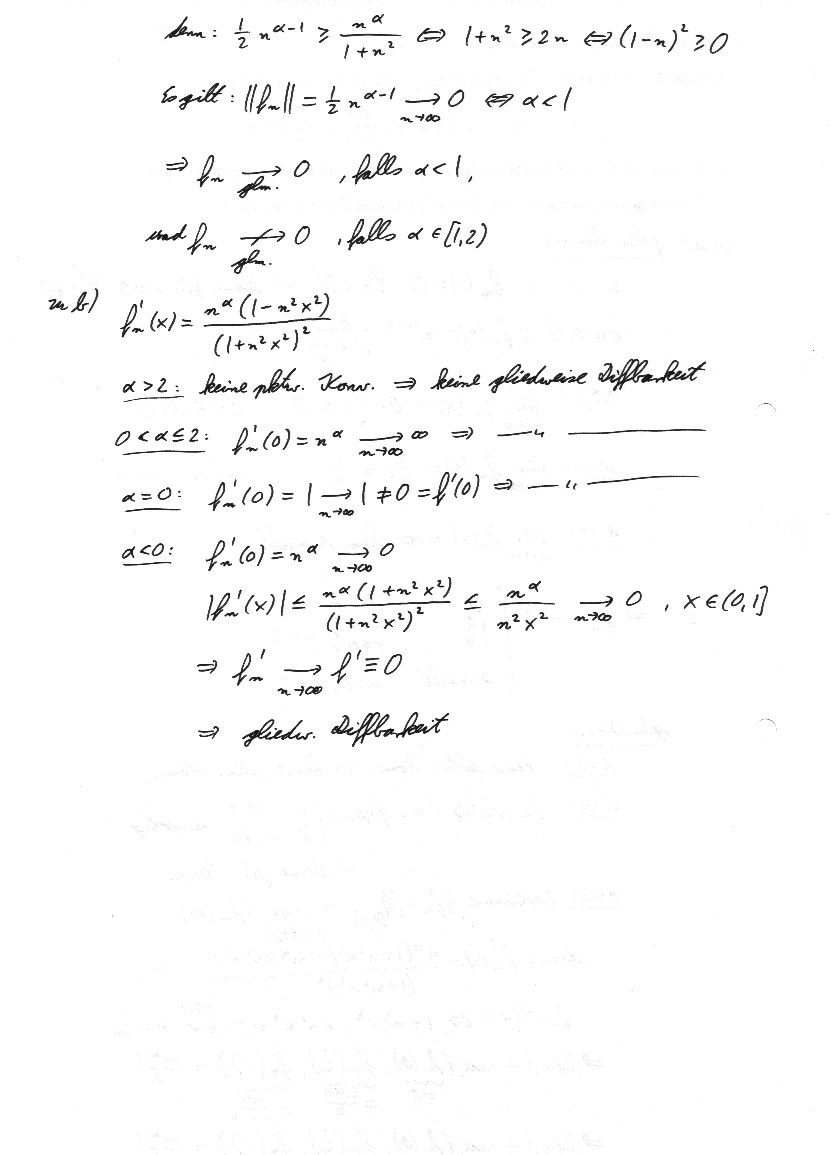 denn: 1/2 n^(α-1) ≥ n^α/(1+n²) ⇔ 1+n² ≥ 2n ⇔ (1-n)² ≥ 0
Es gilt: ||fₙ|| = 1/2 n^(α-1) →_(n→∞) 0 ⇔ α<1
⇒ fₙ →_(glm.) 0 , falls α<1,
und fₙ ↛_(glm.) 0 , falls α ∈ [1,2)
zu b) fₙ'(x) = n^α (1-n²x²)/(1+n²x²)²
α>2: keine pktw. Konv. ⇒ keine gliedweise Diffbarkeit
0<α≤2: fₙ'(0) = n^α →_(n→∞) ∞ ⇒ —〃———
α=0: fₙ'(0) = 1 →_(n→∞) 1 ≠ 0 = f'(0) ⇒ —〃———
α<0: fₙ'(0) = n^α →_(n→∞) 0
|fₙ'(x)| ≤ n^α (1+n²x²)/(1+n²x²)² ≤ n^α/(n²x²) →_(n→∞) 0 , x ∈ (0,1]
⇒ fₙ' →_(n→∞) f' ≡ 0
⇒ gliedw. Diffbarkeit